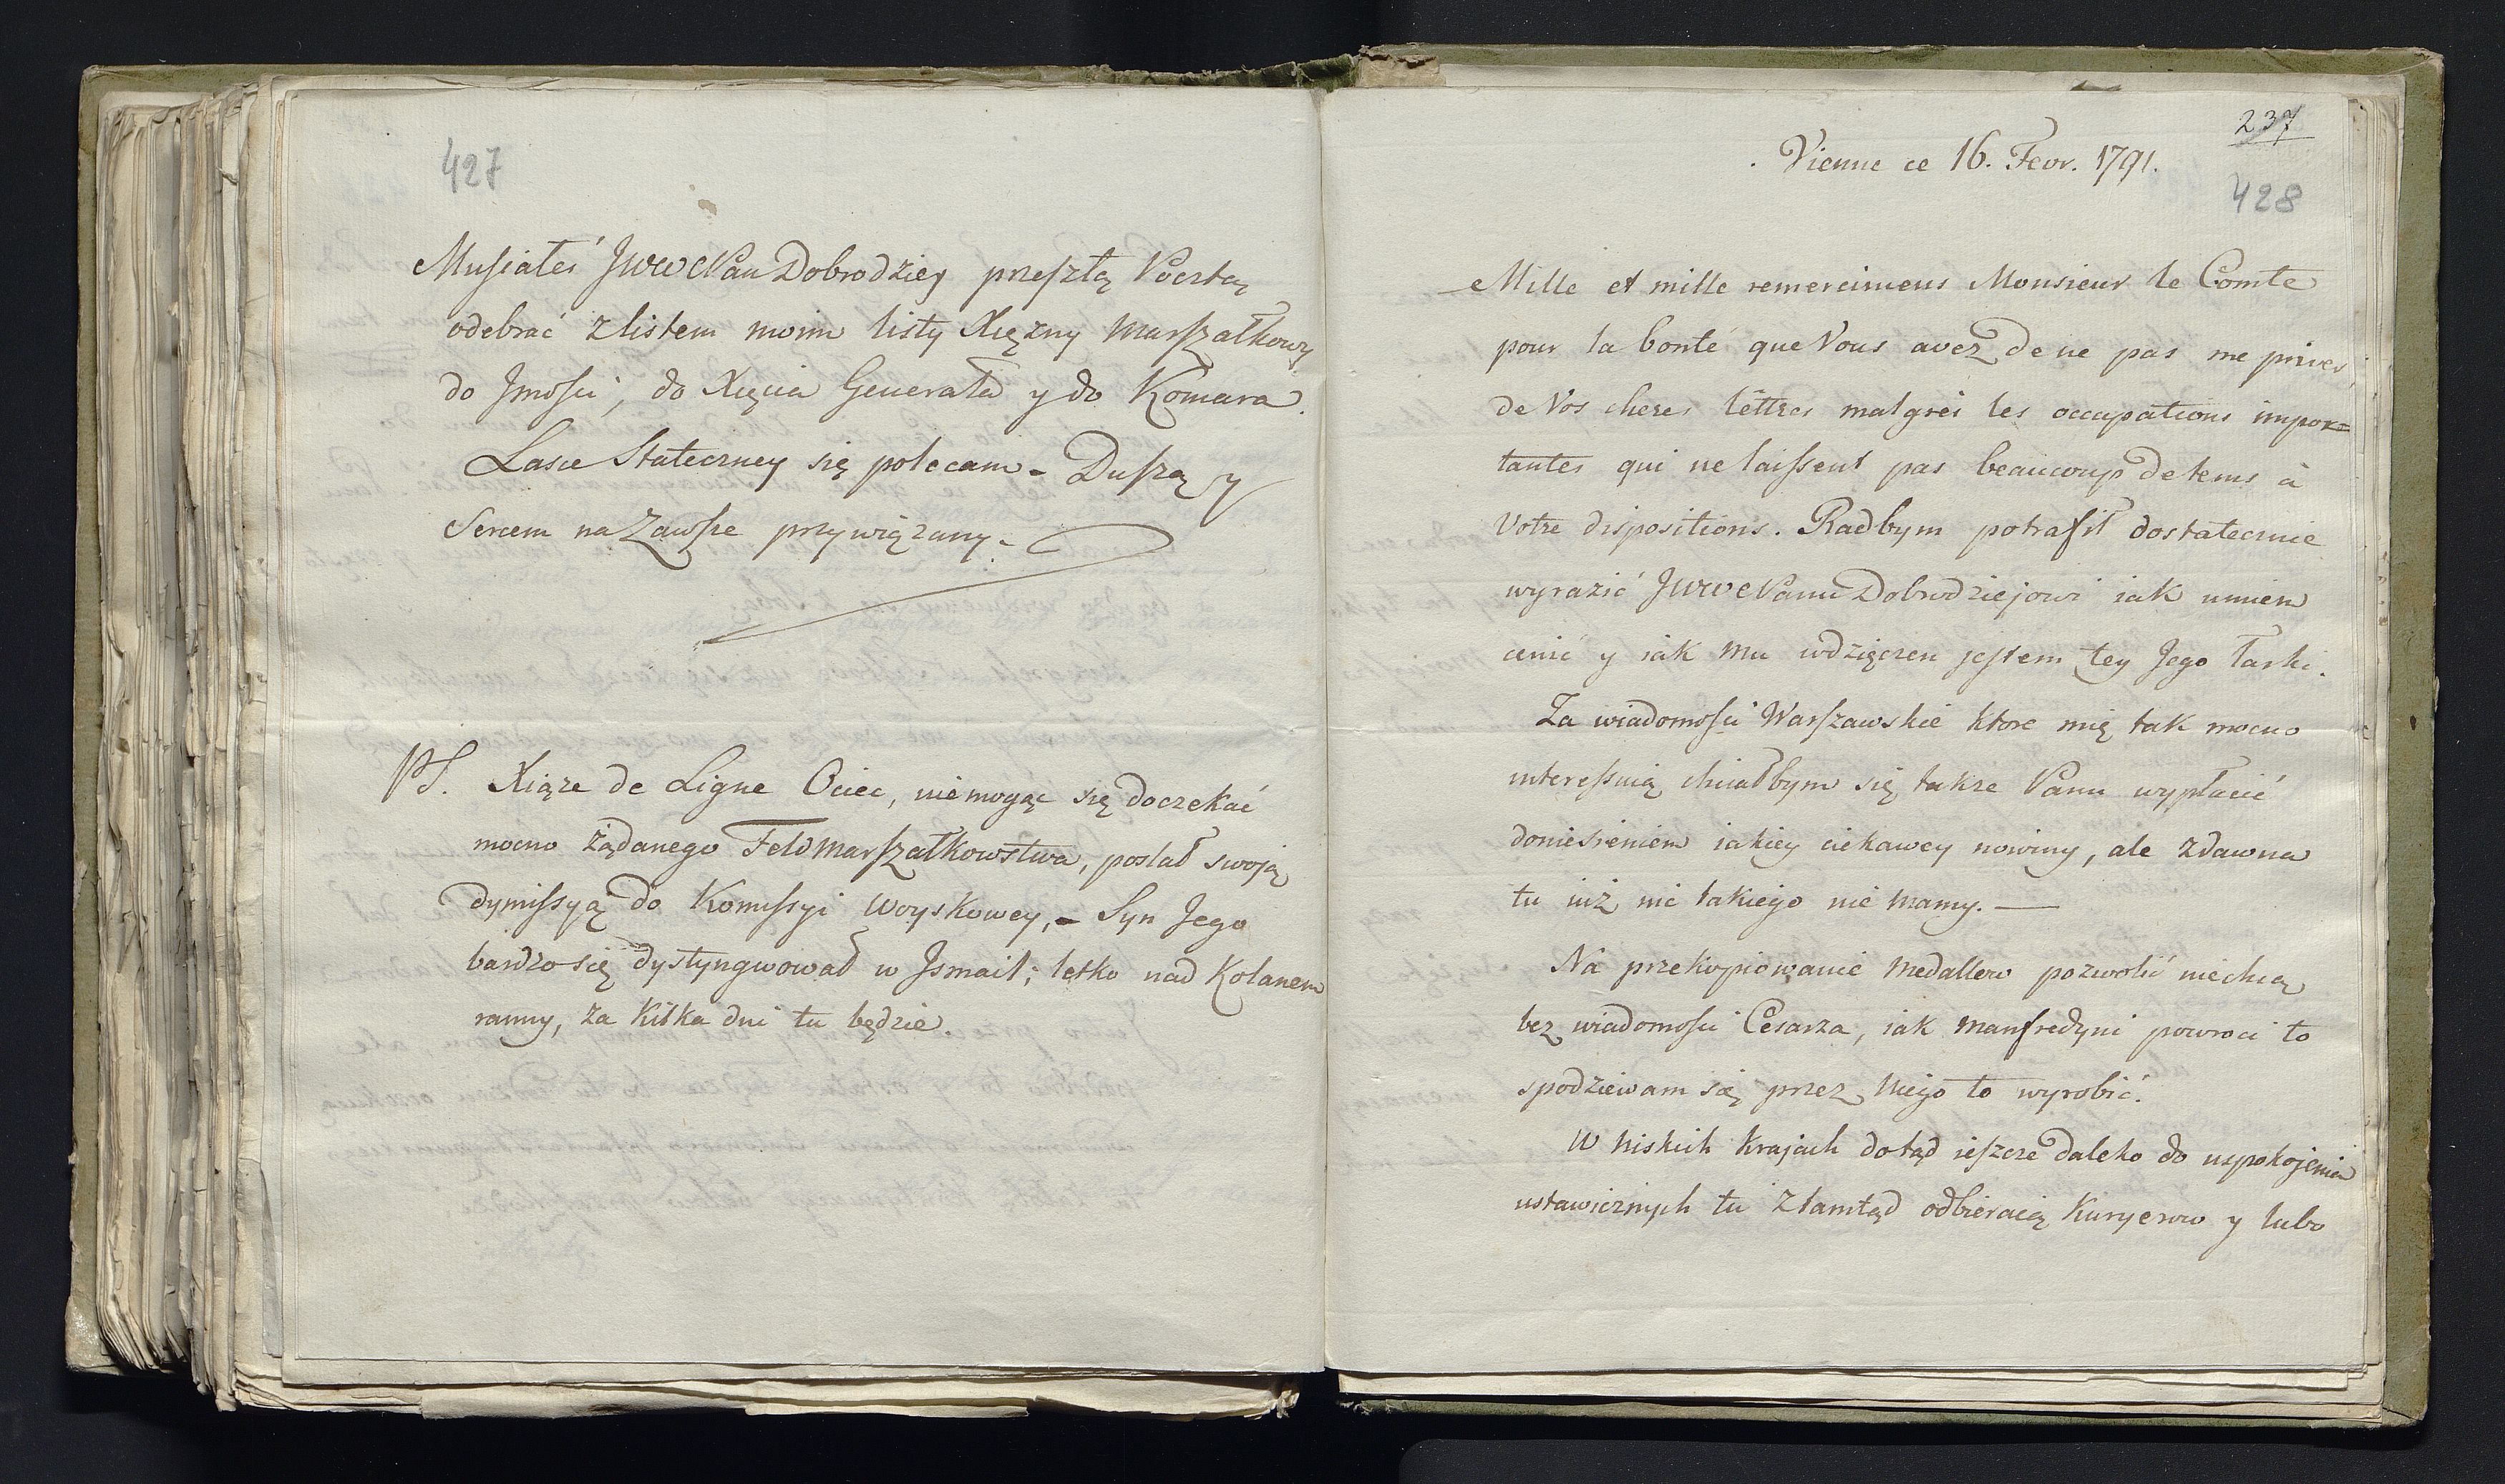 427
Musiałeś JWWPan Dobrodziey przeszłą Pocztą
odebrać z listem moim listy Xiężny Marszałkowy
do Jmości, do Xięcia Generała y do Komara.
Łasce Stateczney się polecam - Duszą y
Sercem na Zawsze przywiązany -
PS. Xiąże de Ligne Ociec, niemogąc się doczekać
mocno żądanego Feldmarszałkowstwa, posłał swoją
dymissyą do Komissyi Woyskowey, - Syn Jego
bardzo się dystyngwował w Jsmail; letko nad Kolanem
ranny, za kilka dni tu będzie.
237
Vienne ce 16. Fevr. 1791.
428
Mille et mille remercimens Monsieur le Comte
pour la bonté que Vous avez de ne pas me priver
de Vos cheres lettres malgré les occupations impor=
tantes qui ne laissent pas beaucoup de tems à
Votre dispositions. Radbym potrafił dostatecznie
wyrazić JWWPanu Dobrodziejowi iak umiem
cenić y iak mu wdzięczen jestem tey Jego łaski.
Za wiadomości Warszawskie ktore mię tak mocno
interessuią chciałbym się także Panu wypłacić
doniesieniem iakiey ciekawey nowiny, ale zdawna
tu iuż nic takiego nie mamy. —
Na przekopiowanie medallow pozwolić niechcą
bez wiadomości Cesarza, iak Manfredyni powroci to
spodziewam się przez niego to wyrobić.
W niskich Krajach dotąd ieszcze daleko do uspokojenia
ustawicznych tu ztamtąd odbieraią Kuryerow y lubo